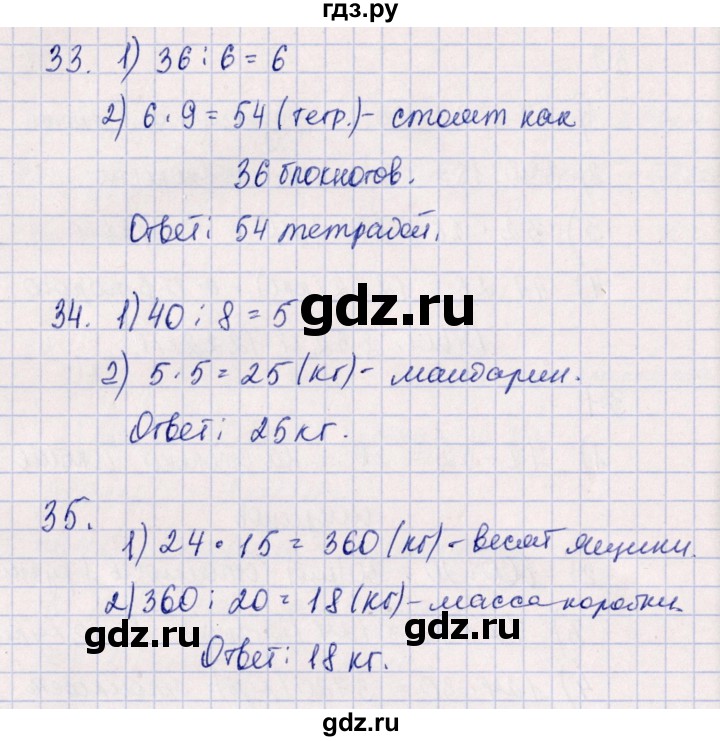 гдз.ру
33. 1) 36 : 6 = 6
2) 6 · 9 = 54 (тетр.) - стоят как
36 блокнотов.
Ответ: 54 тетрадей.
34. 1) 40 : 8 = 5
gdz.ru
2) 5 · 5 = 25 (кг) - мандарин.
Ответ: 25 кг.
35.
1) 24 · 15 = 360 (кг) - весят ящики.
2) 360 : 20 = 18 (кг) - масса коробки.
gdz.ru gdz.ru
Ответ: 18 кг.
gdz.ru